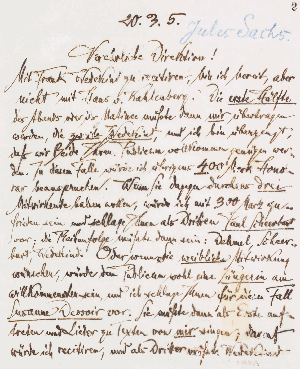 2
20.3.5.
Jules Sachs.
Verehrliche Direktion!
Mit Frank Wedekind zu recitieren, bin ich bereit, aber
nicht mit Hans v. Kahlenberg. Die erste Hälfte
des Abends oder der Matinee müßte dann mir übertragen
werden, die zweite Wedekind und ich bin überzeugt,
daß wir beide Ihrem Publicum vollkommen genügen wer-
den. In diesem Falle würde ich übrigens 400 Mark Hono-
rar beanspruchen. Wenn Sie dagegen durchaus drei
Mitwirkende haben wollen, würde ich mit 300 Mark zu-
frieden sein und schlage Ihnen als Dritten Paul Scheerbart
vor; die Reihenfolge müßte dann sein: Dehmel, Scheer-
bart, Wedekind. Oder wenn Sie weibliche Mitwirkung
wünschen, würde dem Publicum wohl eine Sängerin am
willkommensten sein und ich schlage Ihnen für diesen Fall
Susanne Dessoir vor. Sie müßte dann als Erste auf-
treten und Lieder zu Texten von mir singen; darauf
würde ich recitiren, und als Dritter müßte Wedekind